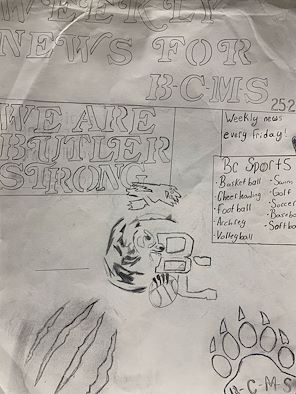 WEEKLY
NEWS FOR
B-C-MS
252
WE ARE
BUTLER
STRONG
Weekly news
every friday!
BC Sports
• Basketball
• Cheerleading
• Football
• Archrey
• Volleyball
• Swim
• Golf
• Soccer
• Baseba
• Softba
B
B-C-M-S